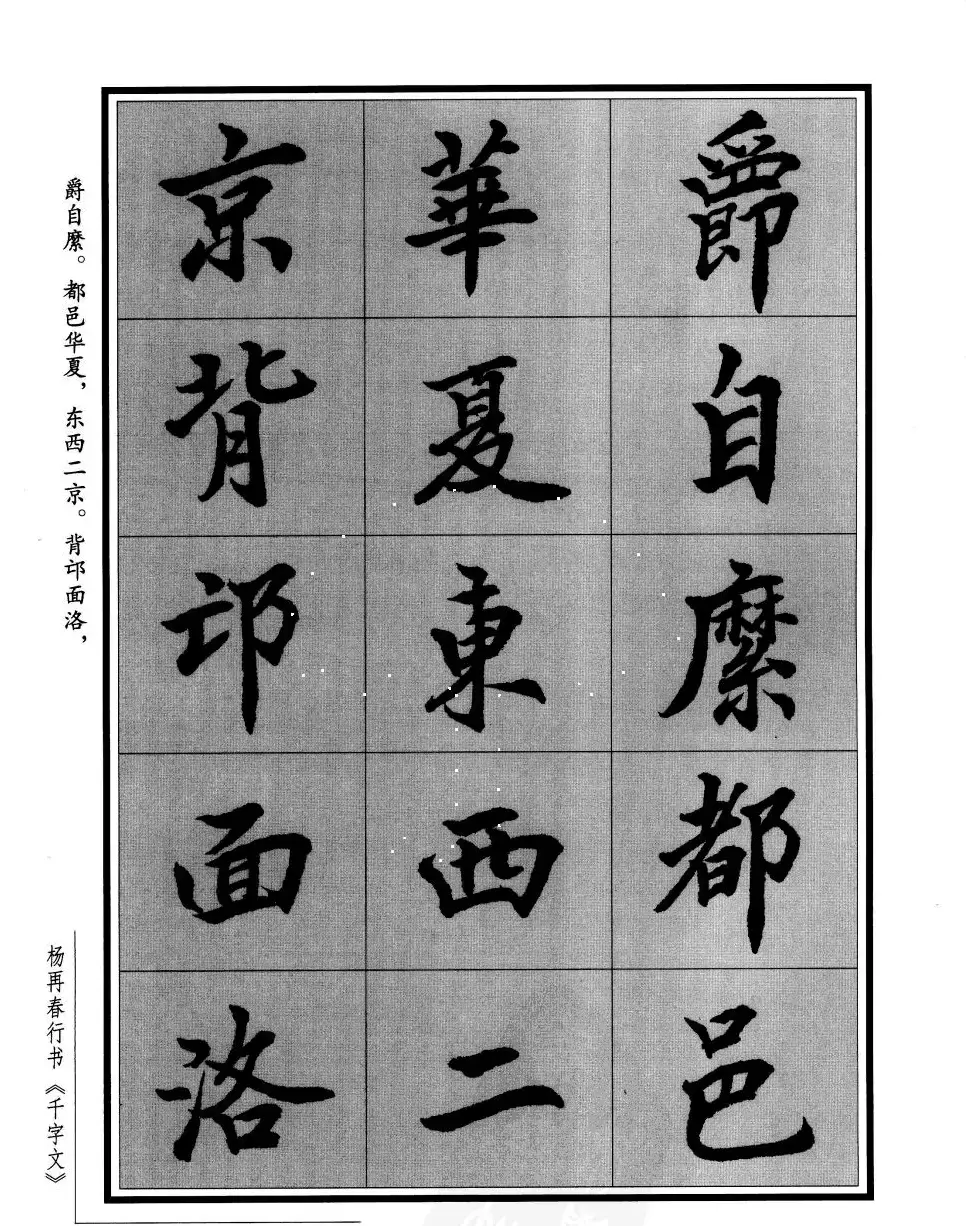 爵自縻都邑
華夏東西二
京背邙面洛
爵自縻。都邑华夏，东西二京。背邙面洛，
杨再春行书《千字文》